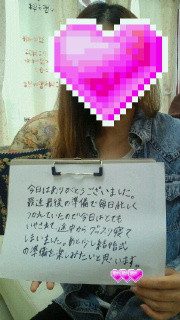 今日はありがとうございました。
最近最後の準備で毎日忙しく
つかれていたので今日はとても
いやされて、途中からグッスリ寝て
しまいました。あと少し結婚式
の準備を楽しみたいと思います。